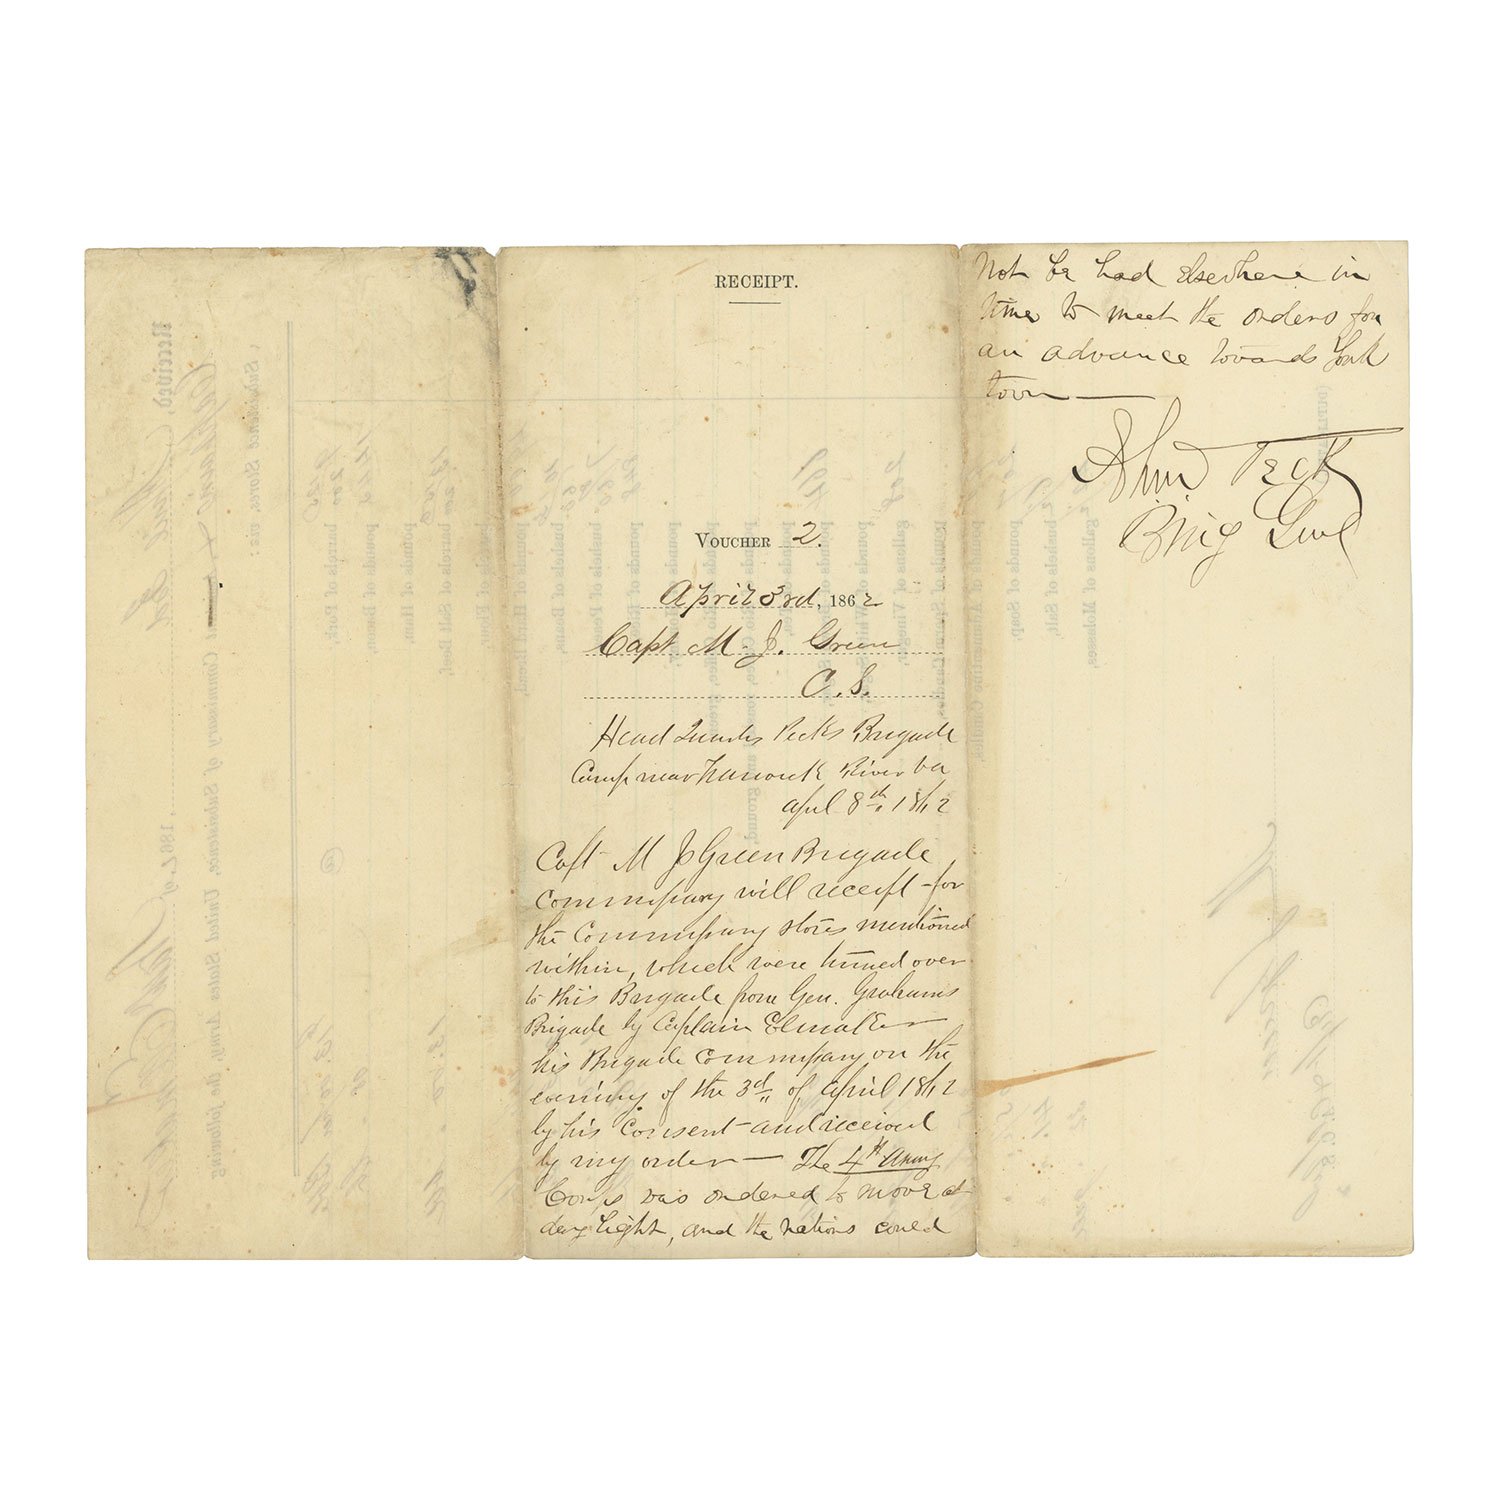 RECEIPT.
VOUCHER 2.
April 3rd, 1862
Capt M. J. Green
C. S.
Head Quarters Pecks Brigade
Camp near Warwick River Va
April 8th, 1862
Capt M J Green Brigade
Commissary will receipt for
the Commissary stores mentioned
within, which were turned over
to this Brigade from Gen. Grahams
Brigade by Captain
his Brigade Commissary on the
evening of the 3d, of April 1862
by his Consent and received
by my order — The 4th Army
Corps was ordered to move at
day light, and the rations could
Not be had Elsewhere in
time to meet the orders for
an advance towards York
town —
John J Peck
Brig Genl